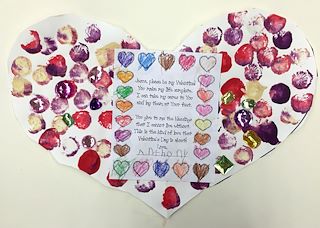 Jesus, please be my Valentine!
You make my life complete.
I can take my cares to You
and lay them at Your feet.
You give to me the blessings
that I cannot live without.
This is the kind of love that
Valentine's Day is about!
Love,
Anthony